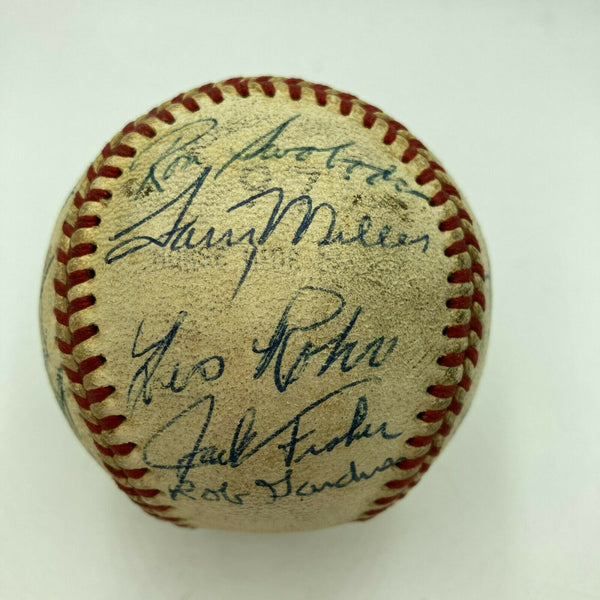 Ron Swoboda
Larry Miller
Les Rohr
Jack Fisher
Rob Gardner